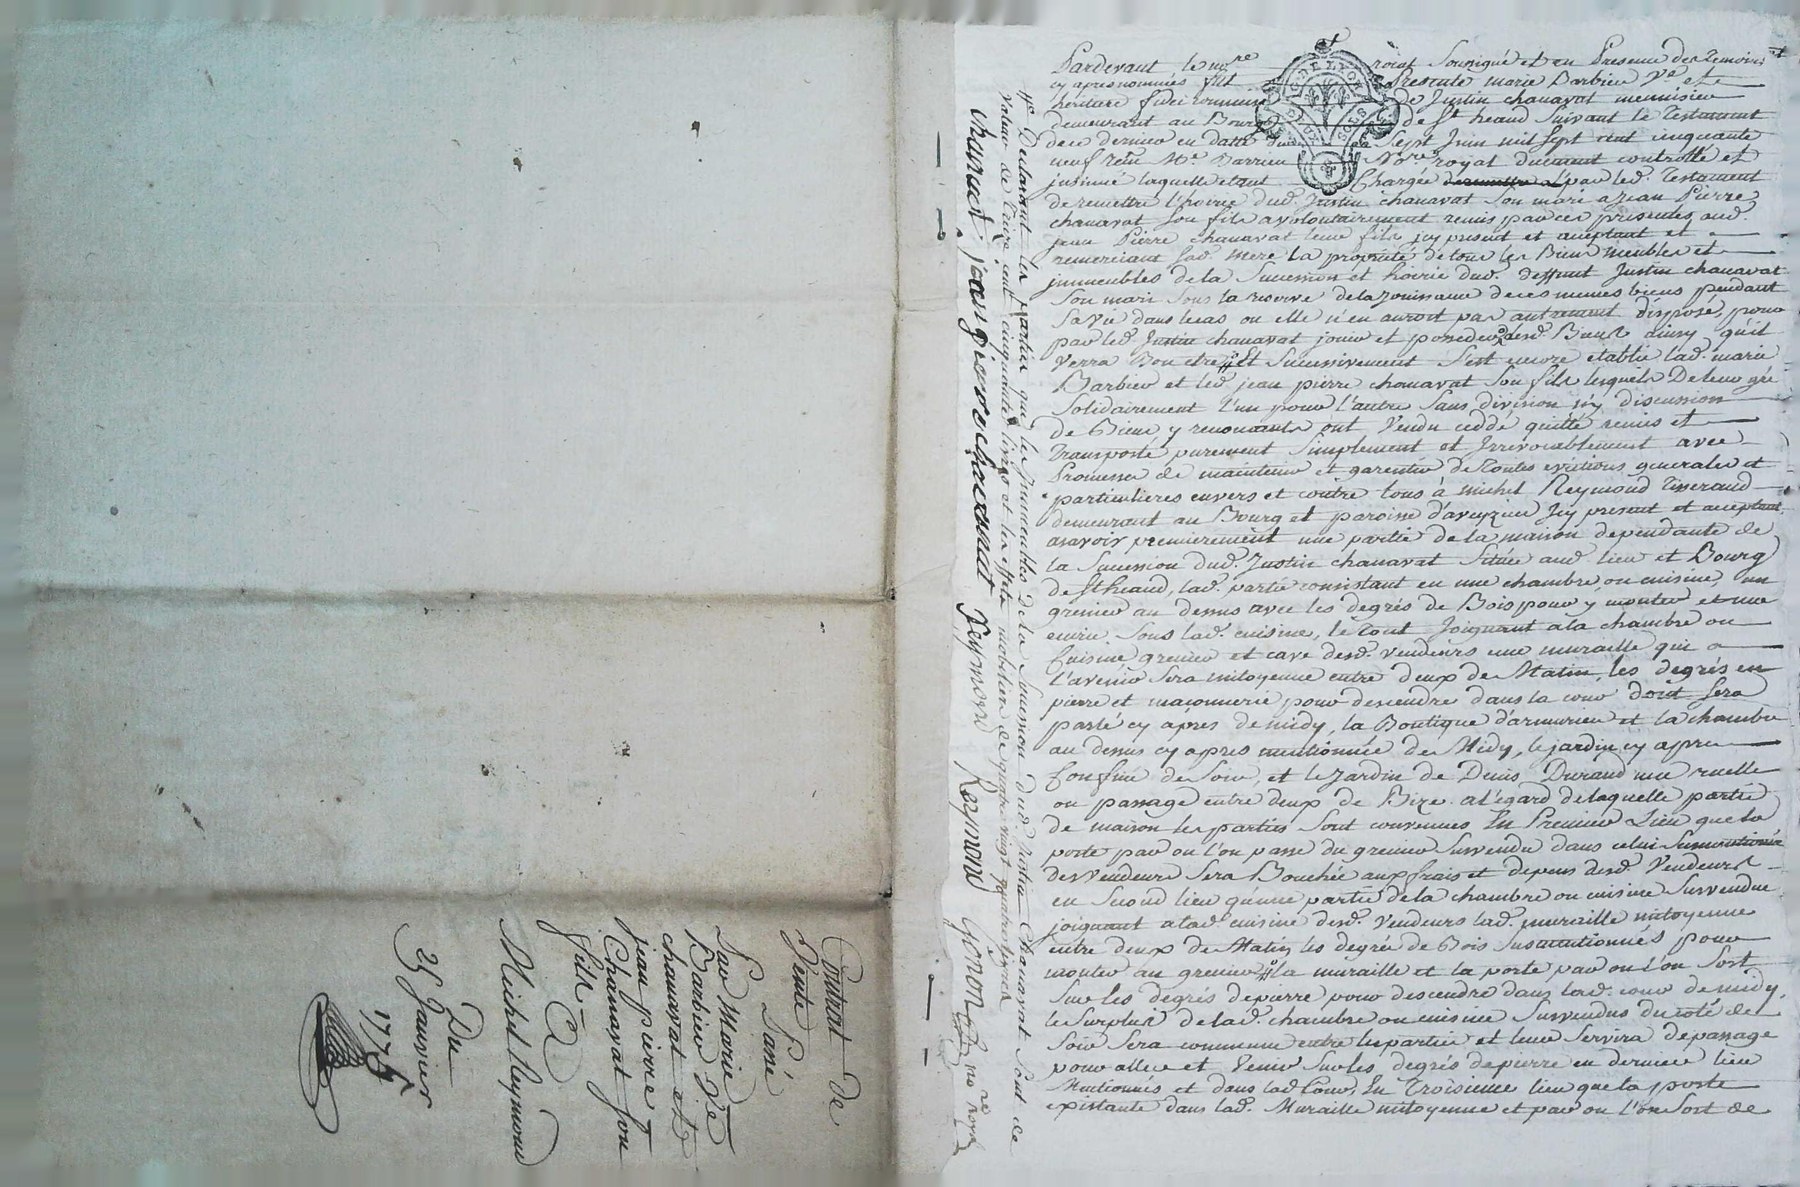 Pardevant le no.re royal Soussigné et en Presence des temoins
cy apres nommés fut Presente marie Barbier V.e et
heritiere fidei commise de Justin chanavat menuisier
demeurant au Bourg de St heand Suivant le testament
de ce dernier en datte du Sept Juin mil sept cent cinquante
neuf reçu M.e Barrieu No.re royal duement controllé et
jnsinué laquelle etant Chargée par led. Testament
de remettre l'hoirie dud. Justin chanavat Son mari a jean Pierre
chanavat Son fils a volontairement remis par ces presentes aud.
jean Pierre chanavat leur fils jcy present et acceptant et
remerciant sad. mere La proprieté de tous les Biens meubles et
jmmeubles de la Succession et hoirie dud. deffunt Justin chanavat
Son mari Sous la reserve de la jouissance de ces memes biens pendant
Sa vie dans le cas ou elle n'en auroit pas autrement disposé, pour
par led. Justin chanavat jouir et posseder desd. Biens ainsy qu'il
Verra Bon etre # Et Successivement S'est encore etablie lad. marie
Barbier et led. jean pierre chanavat Son fils lesquels De leur gré
Solidairement l'un pour l'autre Sans division ny discussion
de Biens y renonçants ont Vendu ceddé quitté remis et
Transporté purement Simplement et Irrevocablement avec
Promesse de maintenir et garentir de Toutes evictions generales et
particulieres envers et contre tous à Michel Reymond Tisserand
demeurant au Bourg et paroisse d'aveyzieu jcy present et acceptant
asavoir premierement une partie de la maison dependante de
la Succession dud. Justin chanavat Située aud. lieu et Bourg
de St heand, lad. partie consistant en une chambre ou cuisine, un
grenier au dessus avec les degrés de Bois pour y monter et une
cave Sous lad. cuisine, le tout Joignant a la chambre ou
Cuisine grenier et cave desd. vendeurs une muraille qui a
l'avenir Sera mitoyenne entre deux de Matin, les degrés en
pierre et maçonnerie pour descendre dans la cour dont Sera
parlé cy apres de midy, la Boutique d'armurier et la chambre
au dessus cy apres mentionnée de Midy, le jardin cy apres
Confiné de Soir, et le Jardin de Denis Durand une ruelle
ou passage entre deux de Bize. a l'egard de laquelle partie
de maison les parties Sont convenues En Premier Lieu que la
porte par ou l'on passe du grenier Survendu dans celui Susmentionné
des Vendeurs Sera Bouchée aux frais et depens desd. Vendeurs
en Second lieu qu'une partie de la chambre ou cuisine Survendue
joignant a lad. cuisine desd. Vendeurs lad. muraille mitoyenne
entre deux de Matin, les degrés de Bois Susmentionnés pour
monter au grenier # la muraille et la porte par ou l'on Sort
Sur les degrés de pierre pour descendre dans lad. cour de midy,
le Surplus de lad. chambre ou cuisine Survendus du coté de
Soir Sera commune entre les parties et leur Servira de passage
pour aller et Venir Sur les degrés de pierre en dernier lieu
Mentionnés et dans lad. Cour, En Troisieme lieu que la porte
existante dans lad. Muraille mitoyenne et par ou l'on Sort de
G. DE LYON
DEUX SOLS
# Declarant les parties que les jmmeubles de la Succession dud. Justin Chanavat Sont de
valeur de Treize cent cinquante livres et les effets mobiliers de quatre vingt quatre livres
chanavat, jean pierre chanavat Reymond Reymond Gonon no.re royal
Contrat de
Vente
Passé
Par Marie
Barbier V.e
chanavat et
jean pierre
Chanavat Son
fils
A
Michel Reymond
Du
25 Janvier
177